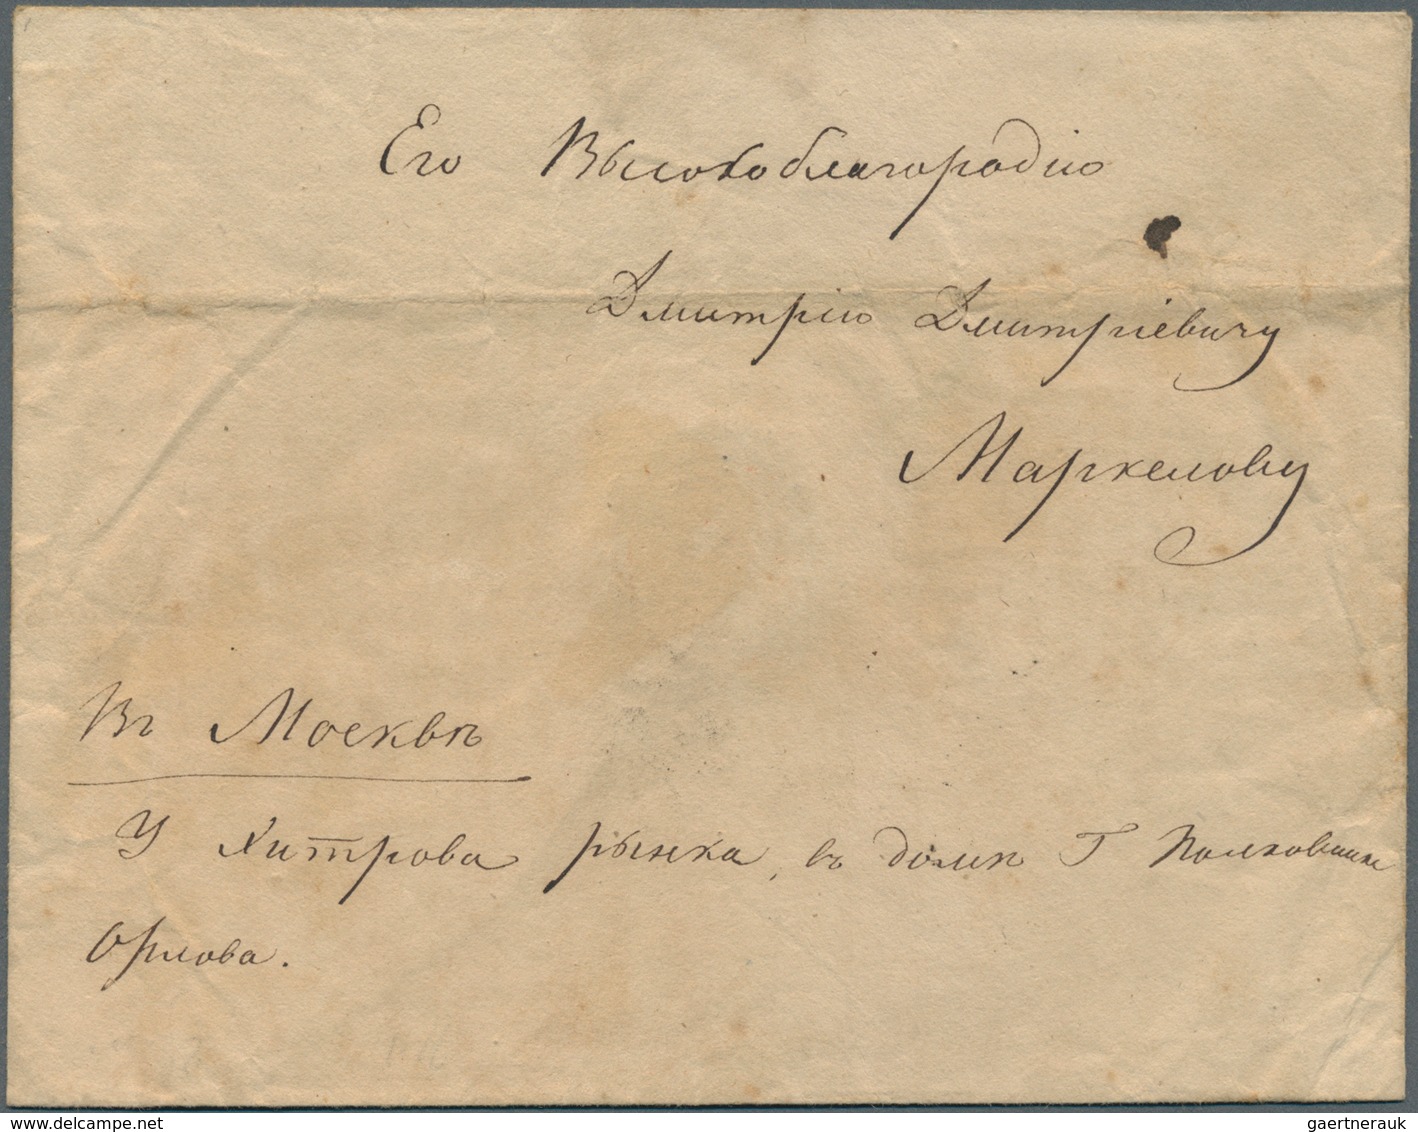 Его Высокоблагородію
Дмитрію Дмитріевичу
Маркелову
Въ Москвѣ
У Хитрова рынка, въ домѣ Г Полковник
Орлова.
delcampe.net
gaertnerauk